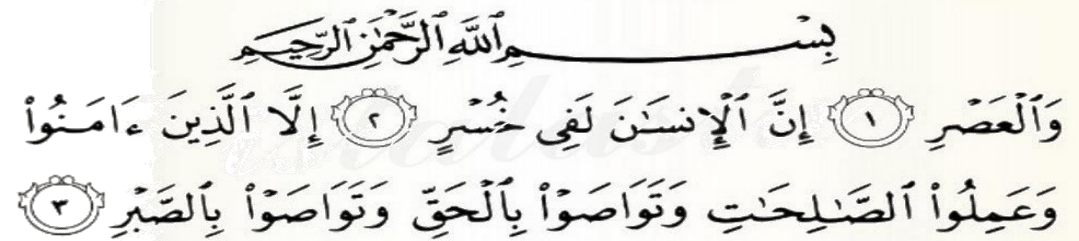 بِسْمِ ٱللَّهِ ٱلرَّحْمَٰنِ ٱلرَّحِيمِ
وَٱلْعَصْرِ ١ إِنَّ ٱلْإِنسَـٰنَ لَفِى خُسْرٍ ٢ إِلَّا ٱلَّذِينَ ءَامَنُوا۟
وَعَمِلُوا۟ ٱلصَّـٰلِحَـٰتِ وَتَوَاصَوْا۟ بِٱلْحَقِّ وَتَوَاصَوْا۟ بِٱلصَّبْرِ ٣